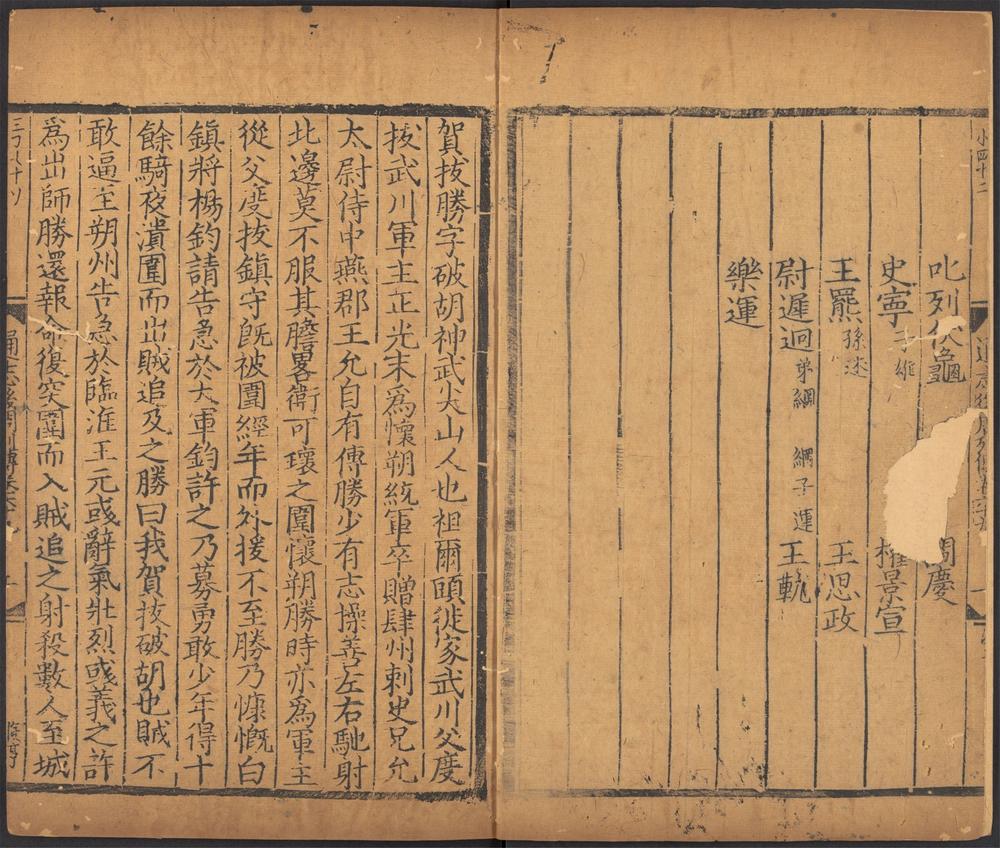 小四十二
叱列伏龜 閻慶
史寧 子雄 權景宣
王羆 孫述 王思政
尉遲迥 弟綱 綱子運 王軌
樂運
賀拔勝字破胡神武尖山人也祖爾頭徙家武川父度
拔武川軍主正光末爲懷朔統軍卒贈肆州刺史兄允
太尉侍中燕郡王允自有傳勝少有志操善左右馳射
北邊莫不服其膽畧衛可瓌之圍懷朔勝時亦爲軍主
從父度拔鎮守旣被圍經年而外援不至勝乃慷慨白
鎮將楊鈞請告急於大軍鈞許之乃募勇敢少年得十
餘騎夜潰圍而出賊追及之勝曰我賀拔破胡也賊不
敢逼至朔州告急於臨淮王元彧辭氣壯烈彧義之許
爲出師勝還報命復突圍而入賊追之射殺數人至城
通志後周列傳卷六十九